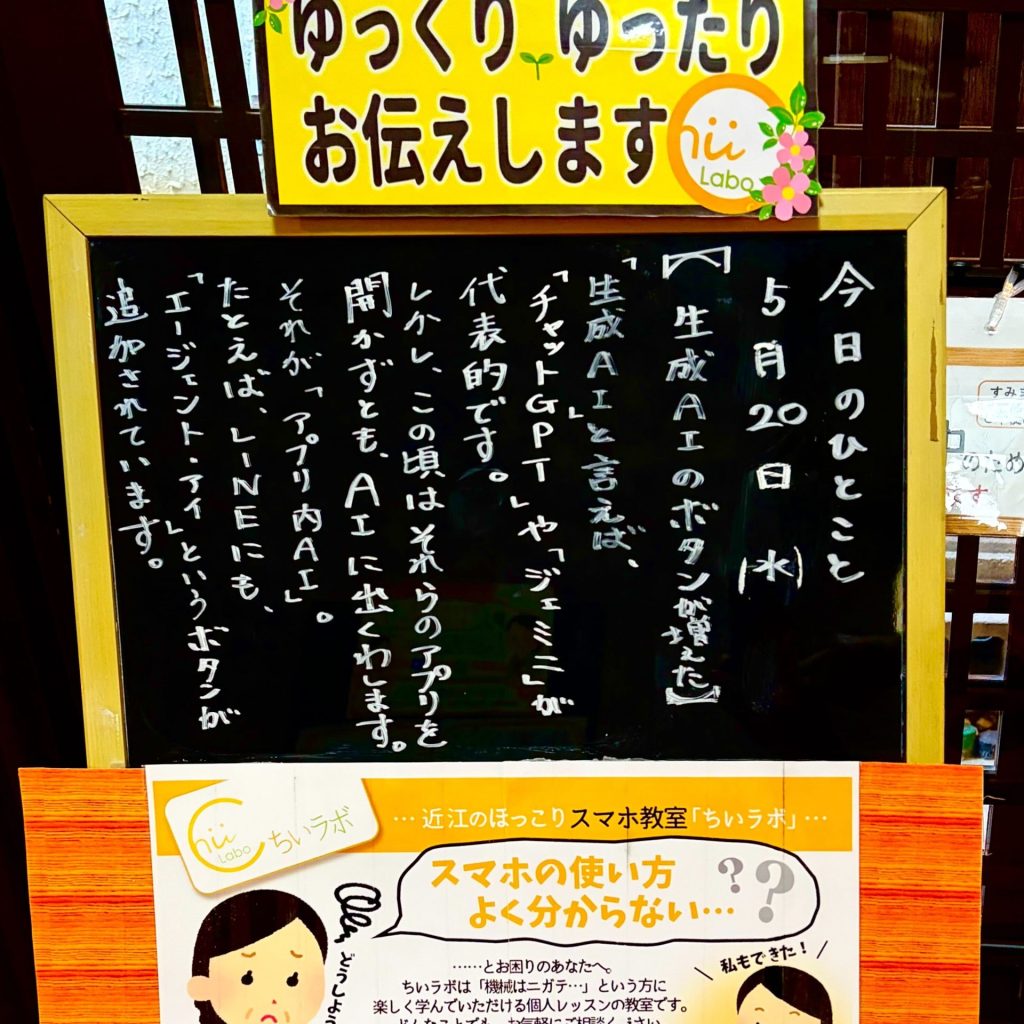 ゆっくり ゆったり
お伝えします
hii
Labo
今日のひとこと
5月20日(水)
【生成AIのボタンが増えた】
「生成AI」と言えば、
「チャットGPT」や「ジェミニ」が
代表的です。
しかし、この頃はそれらのアプリを
開かずとも、AIに出くわします。
それが「アプリ内AI」。
たとえば、LINEにも、
「エージェント・アイ」というボタンが
追加されています。
すみま
のため
です
Chii
Labo
ちいラボ
…近江のほっこりスマホ教室「ちいラボ」…
スマホの使い方
よく分からない…
??
どうしよう
……とお困りのあなたへ。
ちいラボは「機械はニガテ…」という方に
楽しく学んでいただける個人レッスンの教室です。
私もできた!